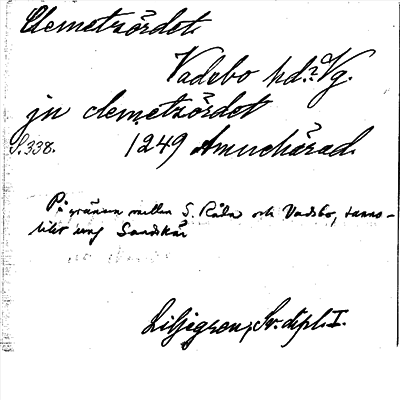 Clemetzördet.
Vadsbo hd? Vg.
jn clemetzördet
S. 338. 1249 Amuehärad.
På gränsen mellan S. Råda och Vadsbo, sanno-
likt ung Sandskär
Liljegren, Sv. dipl. I.